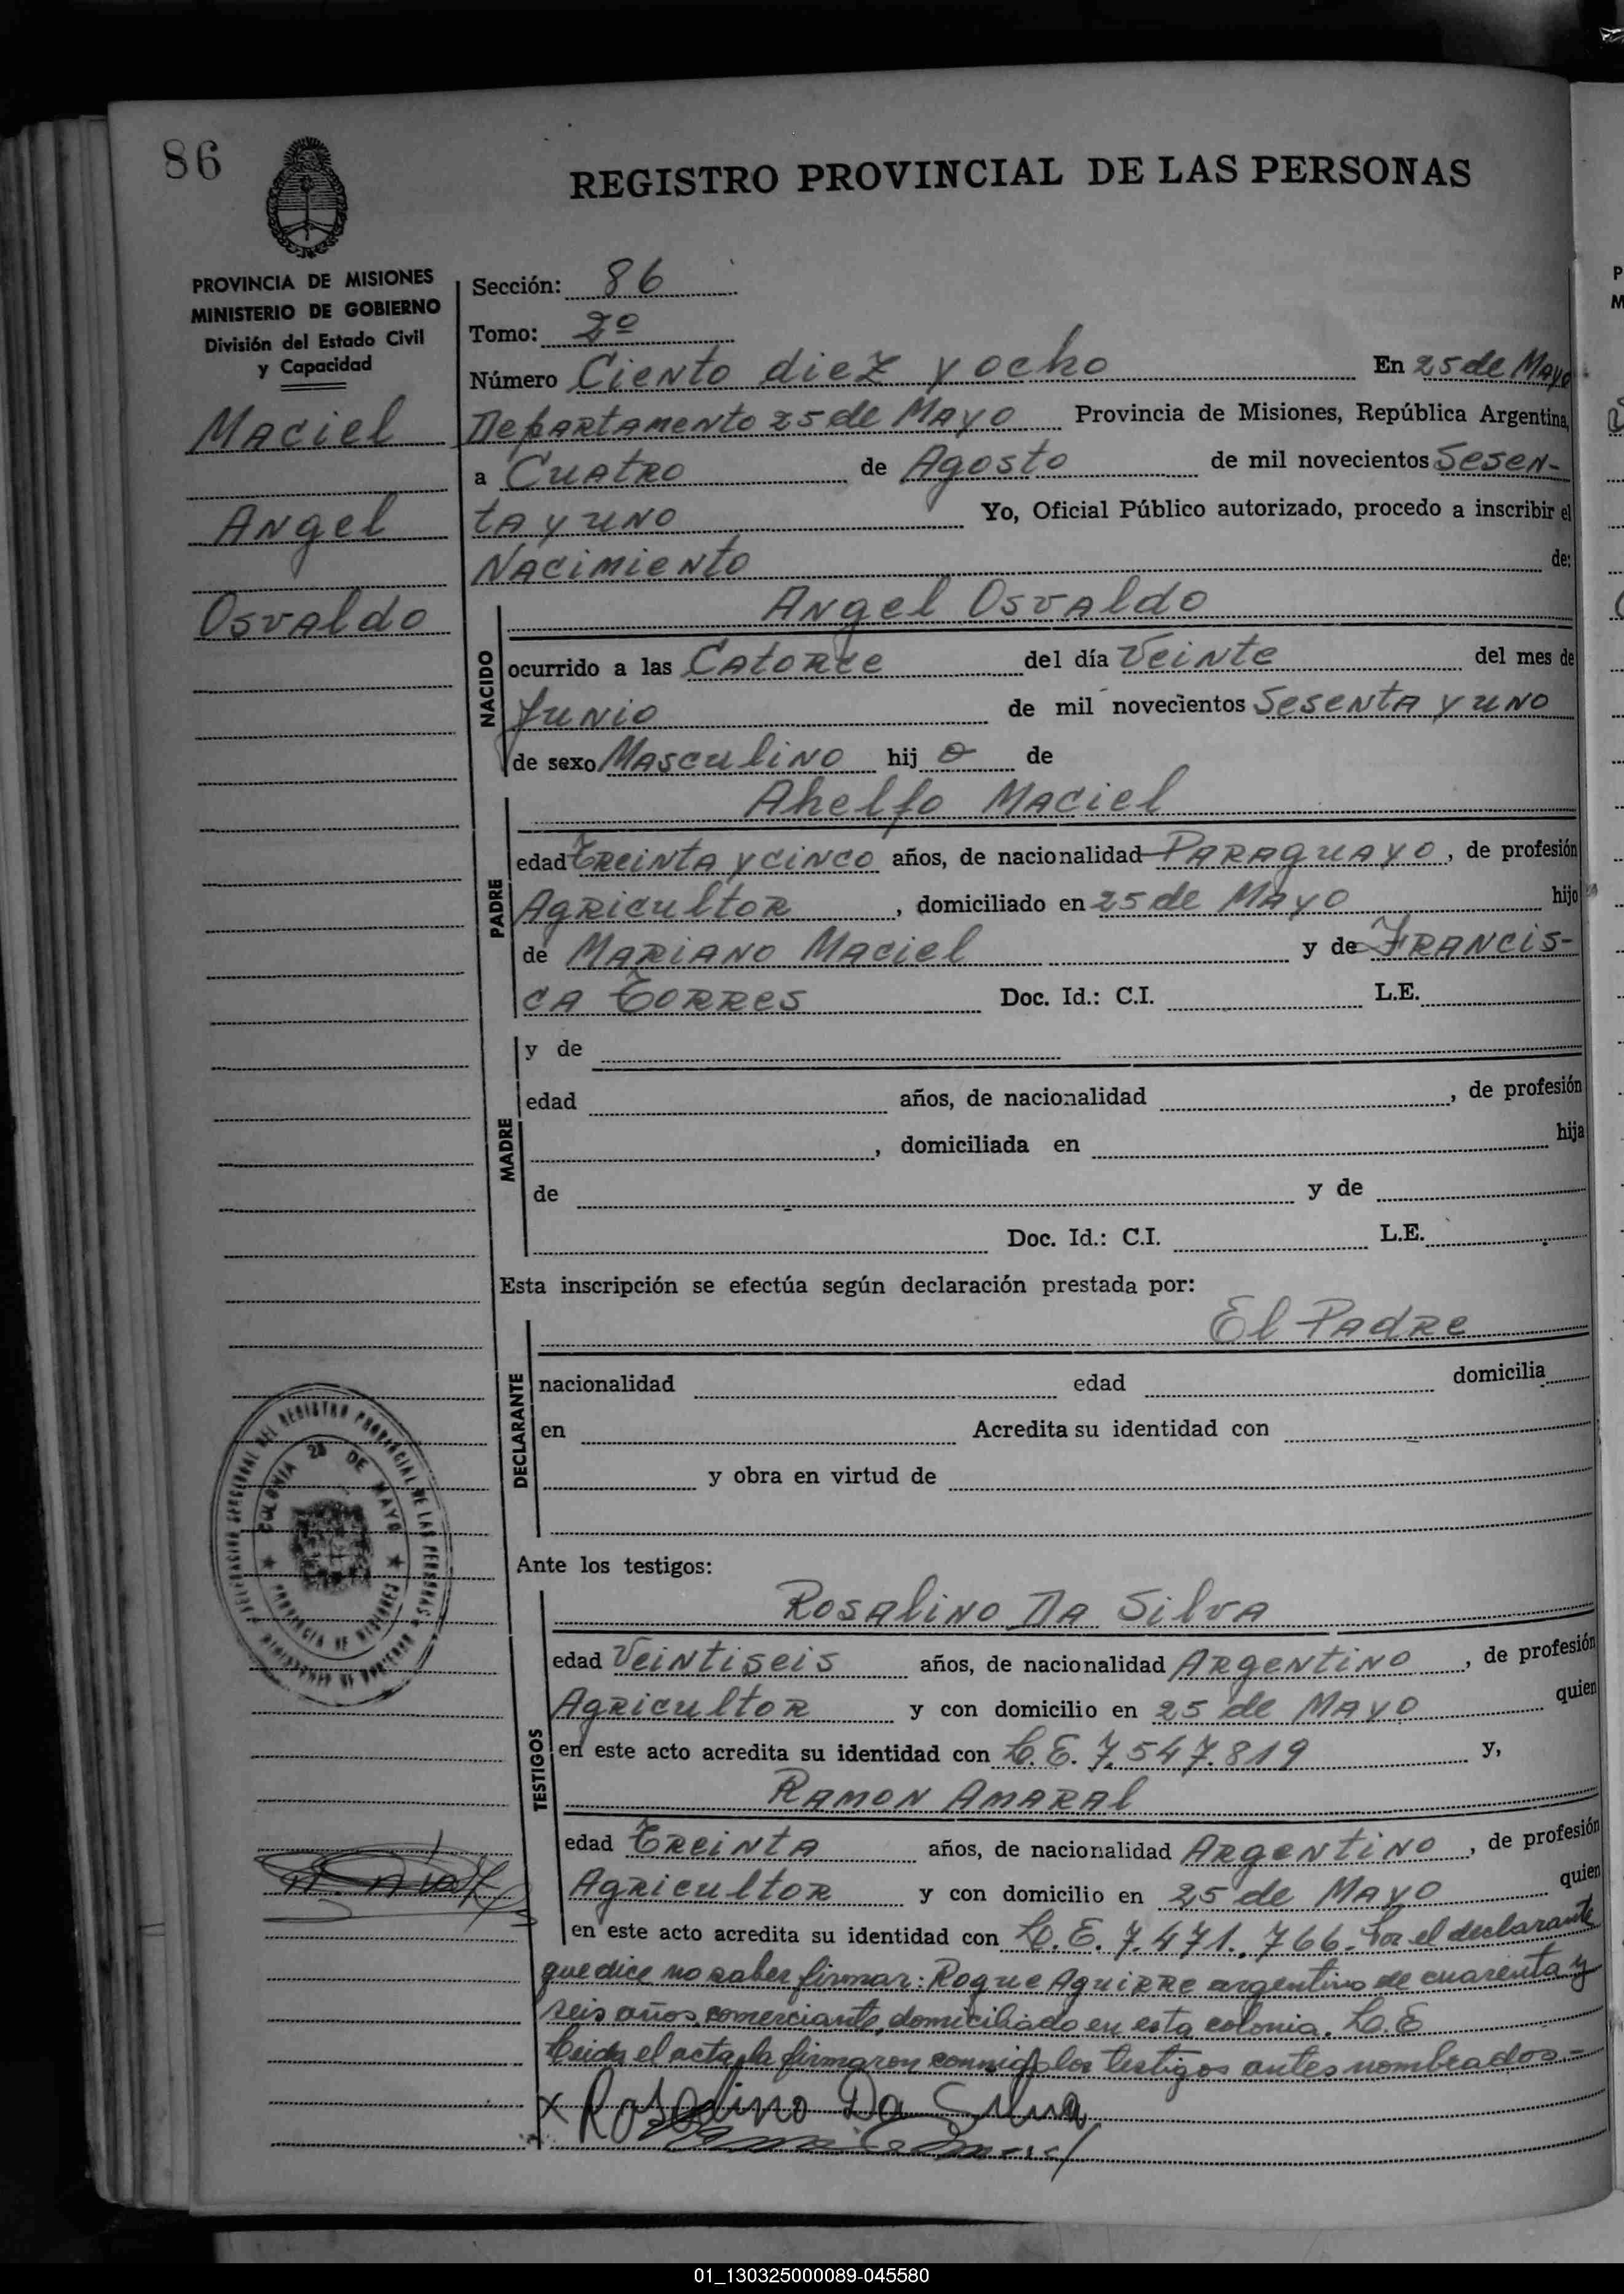 86
REGISTRO PROVINCIAL DE LAS PERSONAS
PROVINCIA DE MISIONES
MINISTERIO DE GOBIERNO
División del Estado Civil
y Capacidad
Maciel
Angel
Osvaldo
Sección: 86
Tomo: 2º
Número Ciento diez y ocho En 25 de Mayo
Departamento 25 de Mayo Provincia de Misiones, República Argentina,
a Cuatro de Agosto de mil novecientos Sesen-
ta y uno Yo, Oficial Público autorizado, procedo a inscribir el
Nacimiento de:
NACIDO
Angel Osvaldo
ocurrido a las Catorce del día Veinte del mes de
Junio de mil novecientos Sesenta y uno
de sexo Masculino hij o de
PADRE
Ahelfo Maciel
edad Treinta y cinco años, de nacionalidad Paraguayo, de profesión
Agricultor, domiciliado en 25 de Mayo hijo
de Mariano Maciel y de Francis-
ca Torres Doc. Id.: C.I. L.E.
MADRE
y de
edad años, de nacionalidad , de profesión
, domiciliada en hija
de y de
Doc. Id.: C.I. L.E.
Esta inscripción se efectúa según declaración prestada por:
DECLARANTE
El Padre
nacionalidad edad domicilia
en Acredita su identidad con
y obra en virtud de
Ante los testigos:
TESTIGOS
Rosalino Da Silva
edad Veintiseis años, de nacionalidad Argentino, de profesión
Agricultor y con domicilio en 25 de Mayo quien
en este acto acredita su identidad con L.E. 7.547.819 y,
Ramon Amaral
edad Treinta años, de nacionalidad Argentino, de profesión
Agricultor y con domicilio en 25 de Mayo quien
en este acto acredita su identidad con L.E. 7.471.766. Por el declarante
que dice no saber firmar: Roque Aguirre argentino de cuarenta y
seis años, comerciante, domiciliado en esta colonia. L.E
Leida el acta, la firmaron conmigo los testigos antes nombrados.-
x Rosalino Da Silva
COLONIA 25 DE MAYO
PROVINCIA DE MISIONES
DEL REGISTRO PROVINCIAL DE LAS PERSONAS
01_130325000089-045580